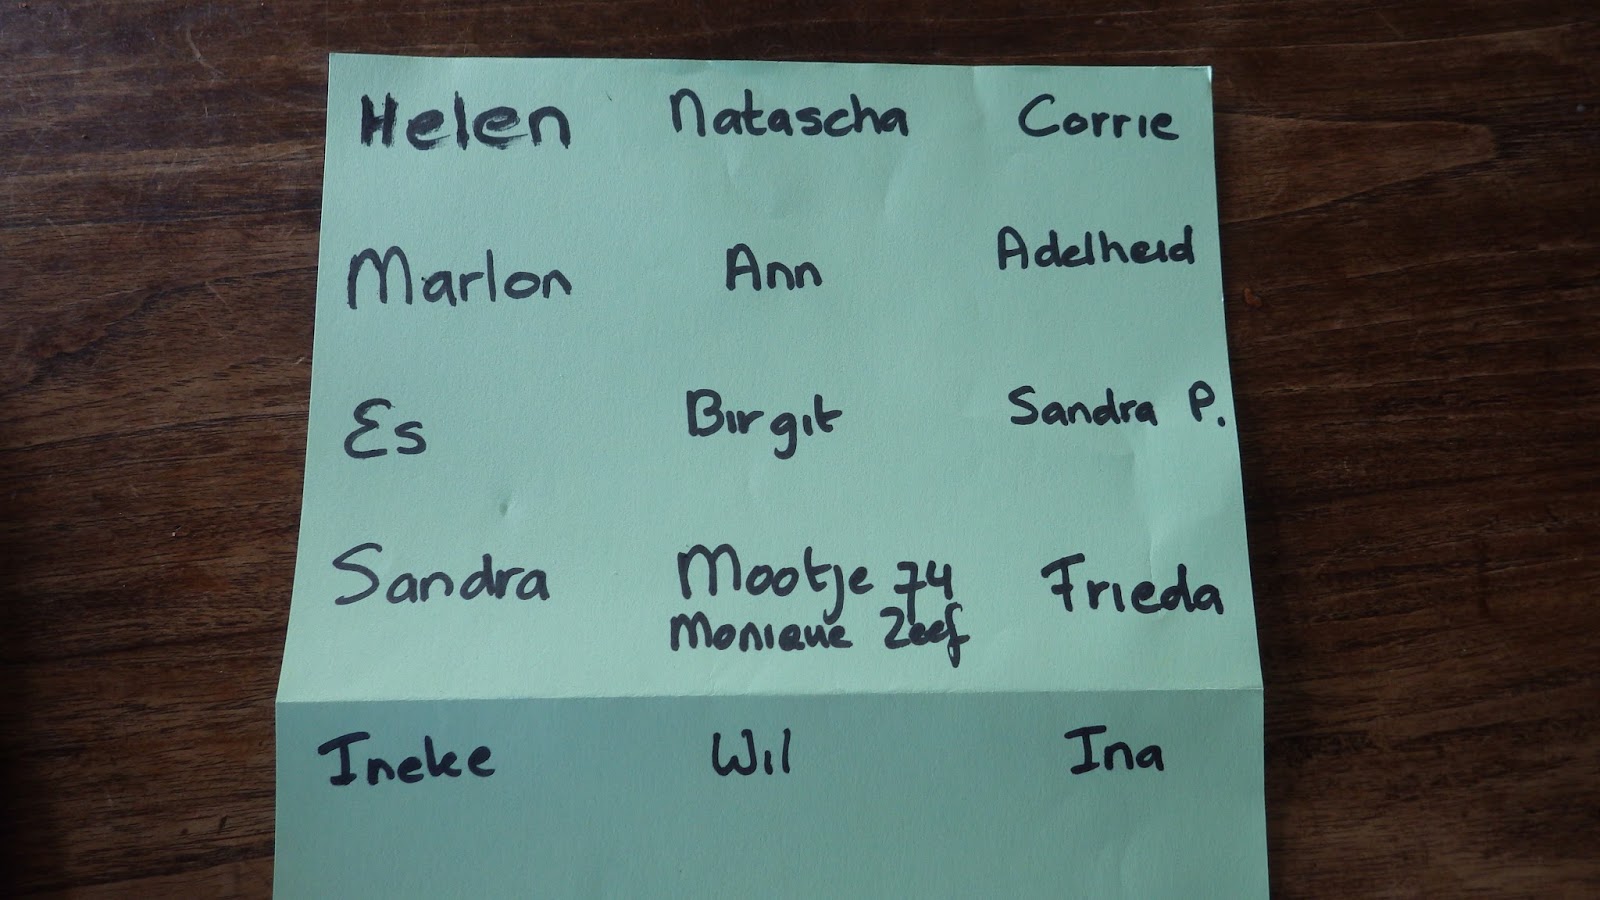 Helen Natascha Corrie
Marlon Ann Adelheid
Es Birgit Sandra P.
Sandra Mootje 74 Frieda
Monique Zeef
Ineke Wil Ina